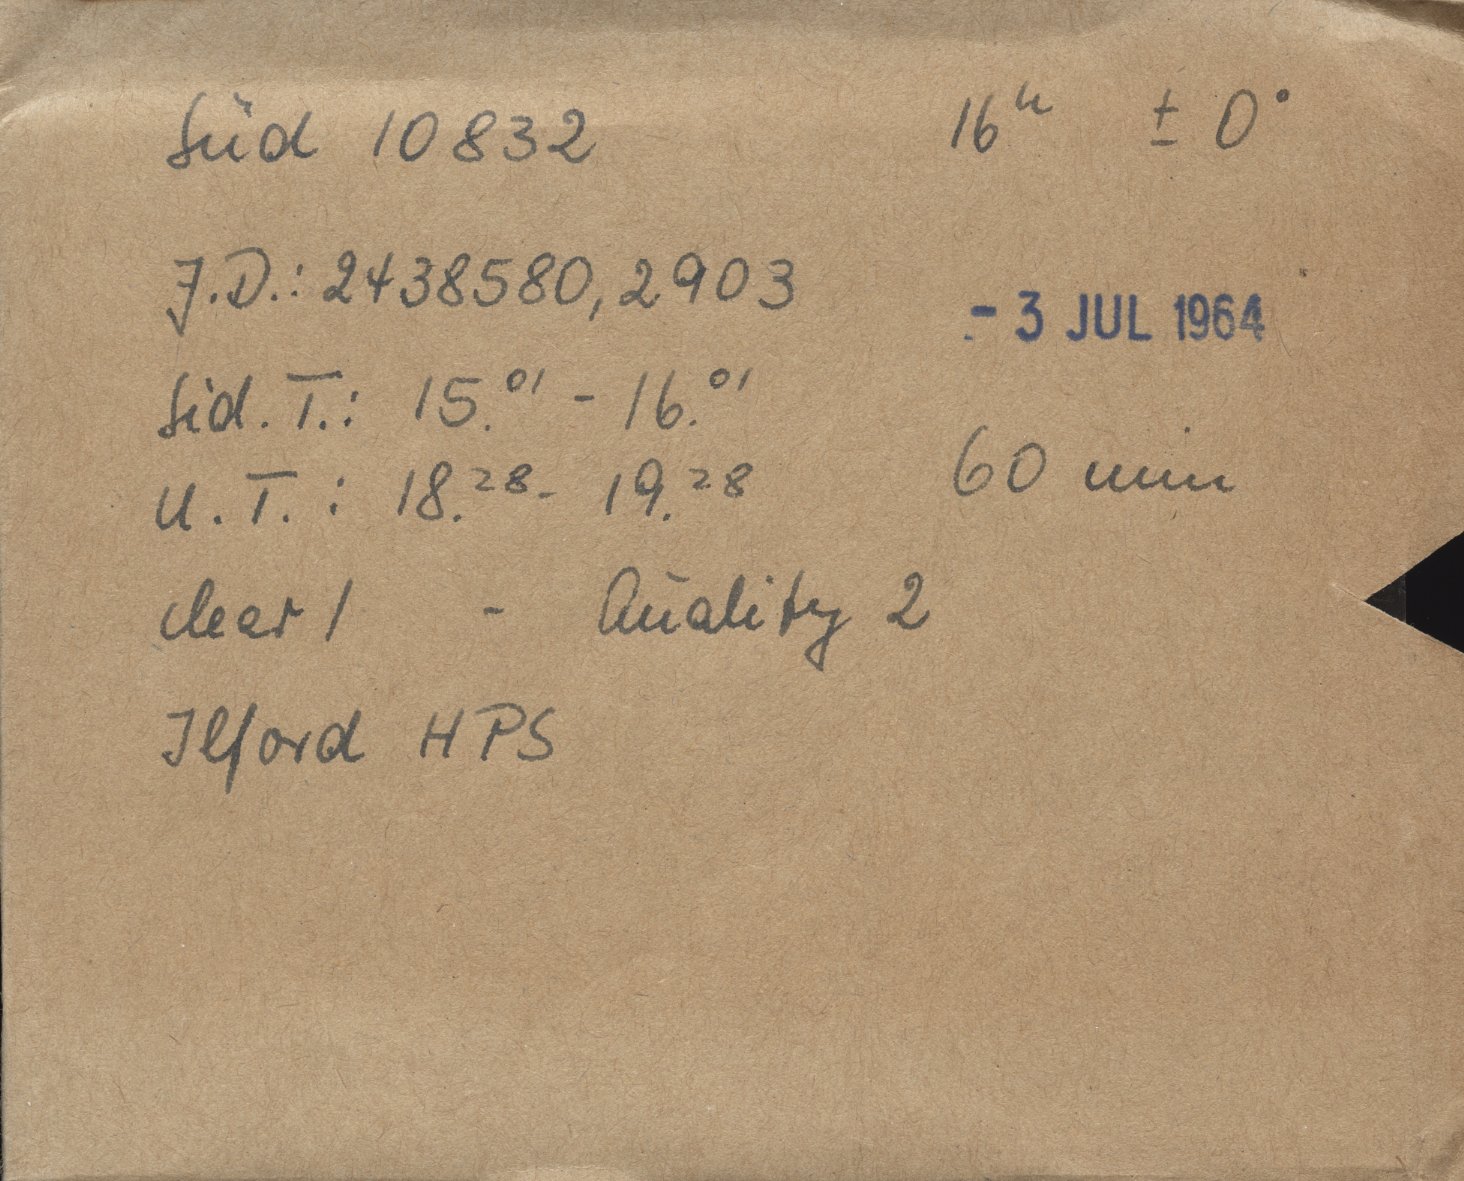 Süd 10832 16ʰ ± 0°
J.D.: 2438580,2903
- 3 JUL 1964
Sid. T.: 15.⁰¹ - 16.⁰¹
U. T.: 18.²⁸ - 19.²⁸ 60 min
clear 1 - Quality 2
Ilford HPS